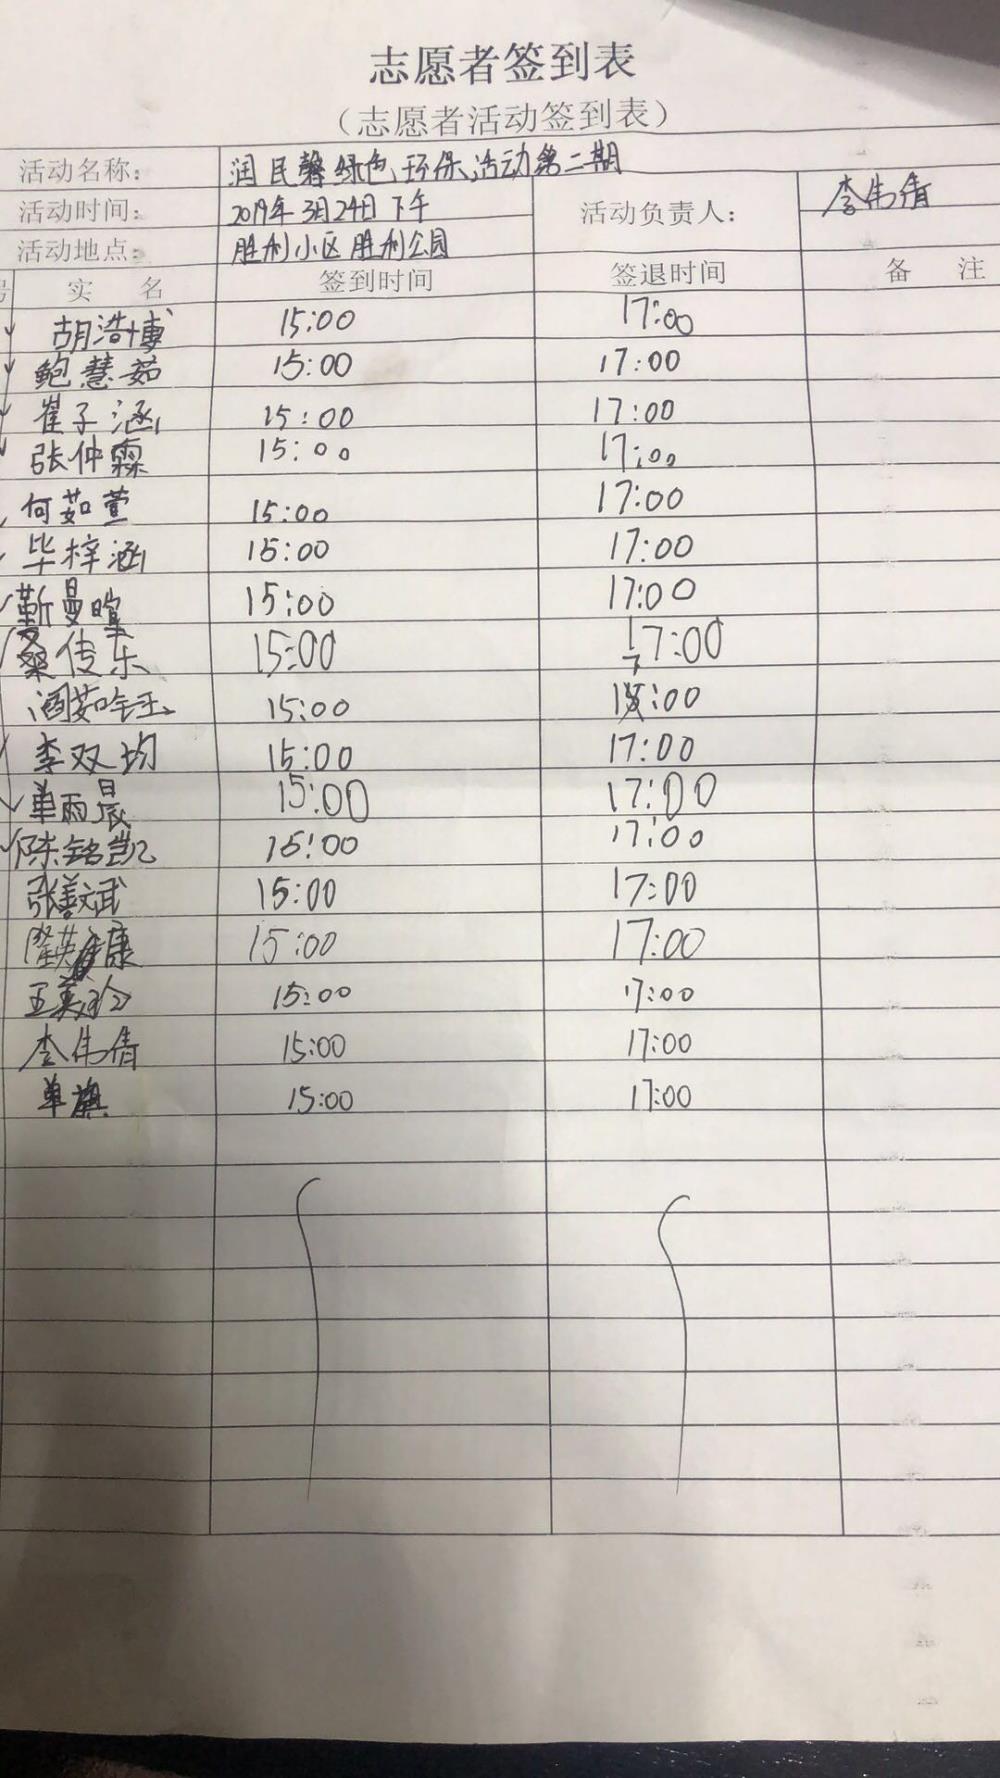 志愿者签到表
（志愿者活动签到表）
活动名称： 润民馨绿色环保活动第二期
活动时间： 2019年3月24日下午 活动负责人： 李伟倩
活动地点： 胜利小区 胜利公园
号 实 名 签到时间 签退时间 备 注
胡浩博 15:00 17:00
鲍慧茹 15:00 17:00
崔子涵 15:00 17:00
张仲霖 15:00 17:00
何茹萱 15:00 17:00
毕梓涵 15:00 17:00
靳曼暄 15:00 17:00
桑传乐 15:00 17:00
15:00 :00
李双均 15:00 17:00
单雨晨 15:00 17:00
陈铭凯 15:00 17:00
张善斌 15:00 17:00
康 15:00 17:00
王美玲 15:00 17:00
李伟倩 15:00 17:00
单旗 15:00 17:00